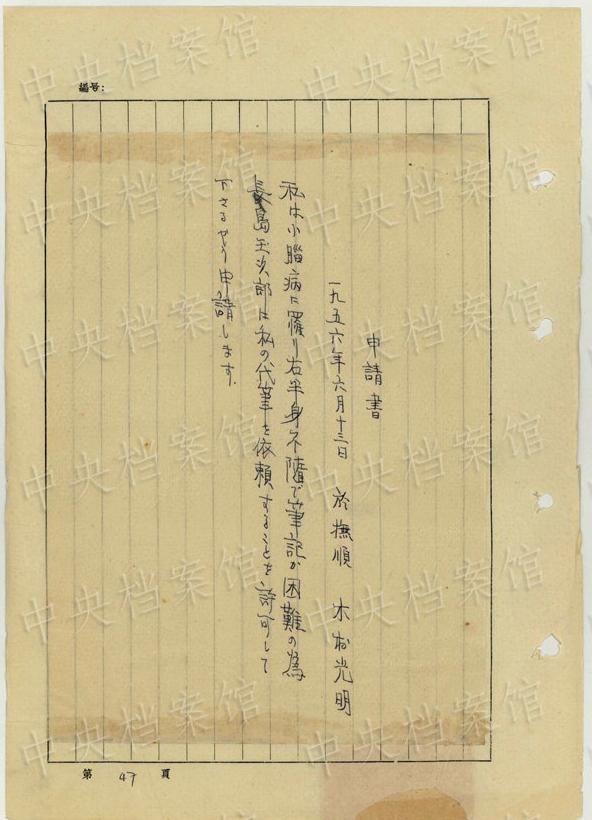 編号：
申請書
一九五六年六月十三日 於撫順 木村光明
私は小脳病に罹り右半身不随で筆記が困難の為
長島玉次郎に私の代筆を依頼することを許可して
下さるやう申請します。
第 47 頁
中央档案馆